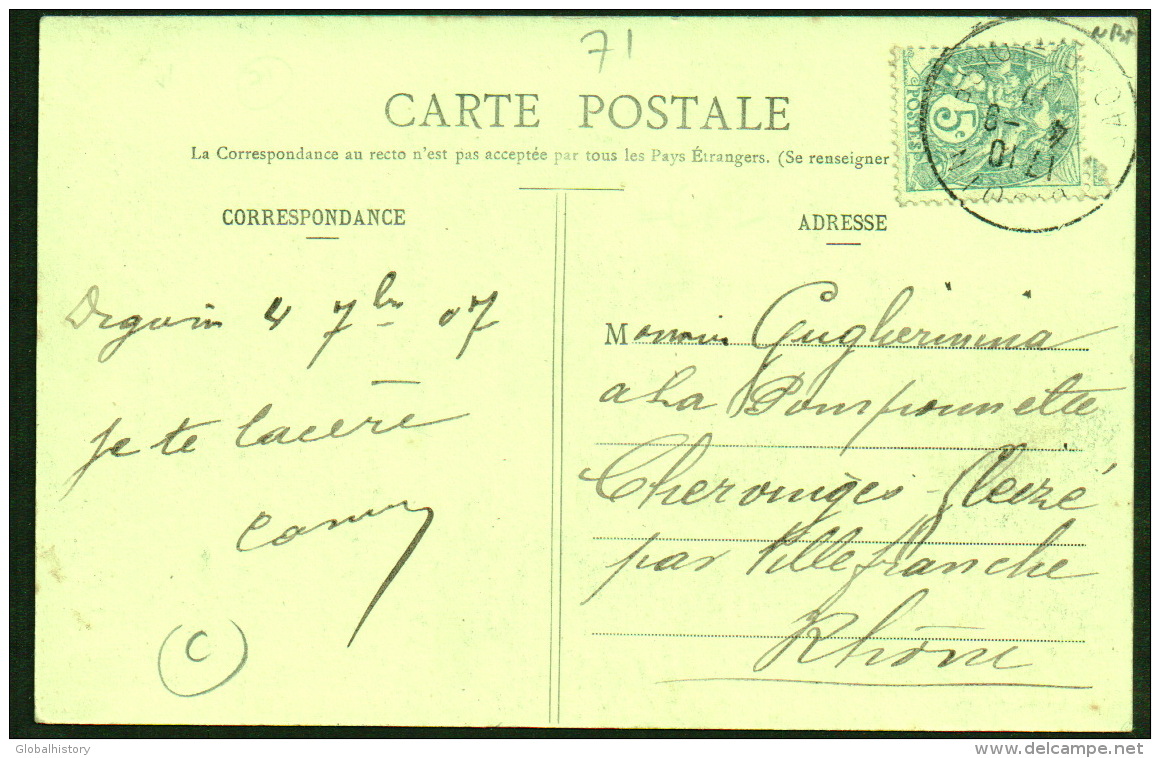 71
CARTE POSTALE
La Correspondance au recto n'est pas acceptée par tous les Pays Étrangers. (Se renseigner
POSTES
5c
CORRESPONDANCE
Digoin 4 7bre 07
je te lacère
C
ADRESSE
Monsieur Gugliermina
a La Pomponnette
Chervinges - Gleizé
par Villefranche
Rhône
Globalhistory
delcampe.net